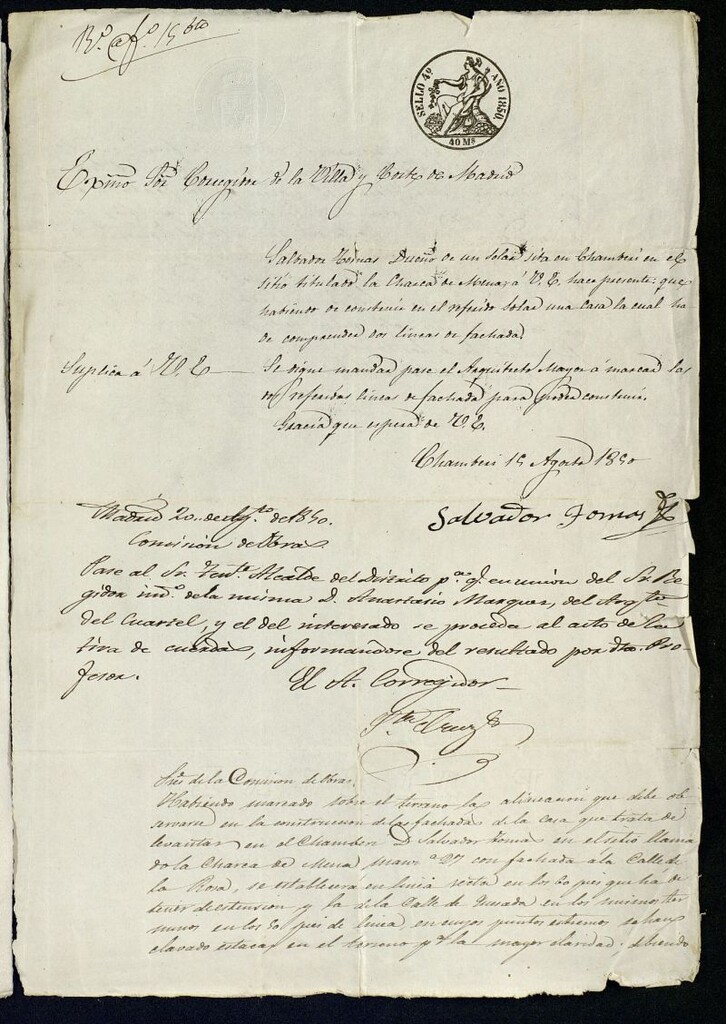 Rº a fº 15 vto
SELLO 4º AÑO 1850.
40 Ms
Exmo Sor Corregidor de la Villa y Corte de Madrid
Salvador Tomas Dueño de un solar sito en Chamberi en el
sitio titulado la Charca de Mena á V. E. hace presente: que
habiendo de construir en el referido solar una casa la cual ha
de comprender dos lineas de fachada.
Suplica á V. E. Se digne mandar pase el Arquitecto Mayor á marcar las
dos referidas lineas de fachada para poder construir.
Gracia que espera de V. E.
Chamberi 15 Agosto 1850
Salvador Tomas
Madrid 20 de Agto de 1850.
Comision de Obras
Pase al Sr. Tente Alcalde del Distrito pa q. en union del Sr. Re-
gidor indo de la misma D. Anastasio Marquez, del Arqto
del Cuartel, y el del interesado se proceda al acto de la
tira de cuerdas, informandose del resultado por dho. Pro-
fesor.
El A. Corregidor
Sta Cruz
Sres de la Comision de Obras.
Habiendo marcado sobre el terreno la alineacion que debe ob-
servarse en la construccion de las fachadas de la casa que trata de
levantar en el Chamberi D. Salvador Tomas en el sitio llama-
do la Charca de Mena, manzª 27 con fachada á la Calle de
la Rosa, se establecera en linea recta en los 50 pies que há de
tener de estension y la de la Calle de Quesada en los mismos ter-
minos en los 50 pies de linea, en cuyos puntos estremos se han
clavado estacas en el terreno pª la mayor claridad; debiendo